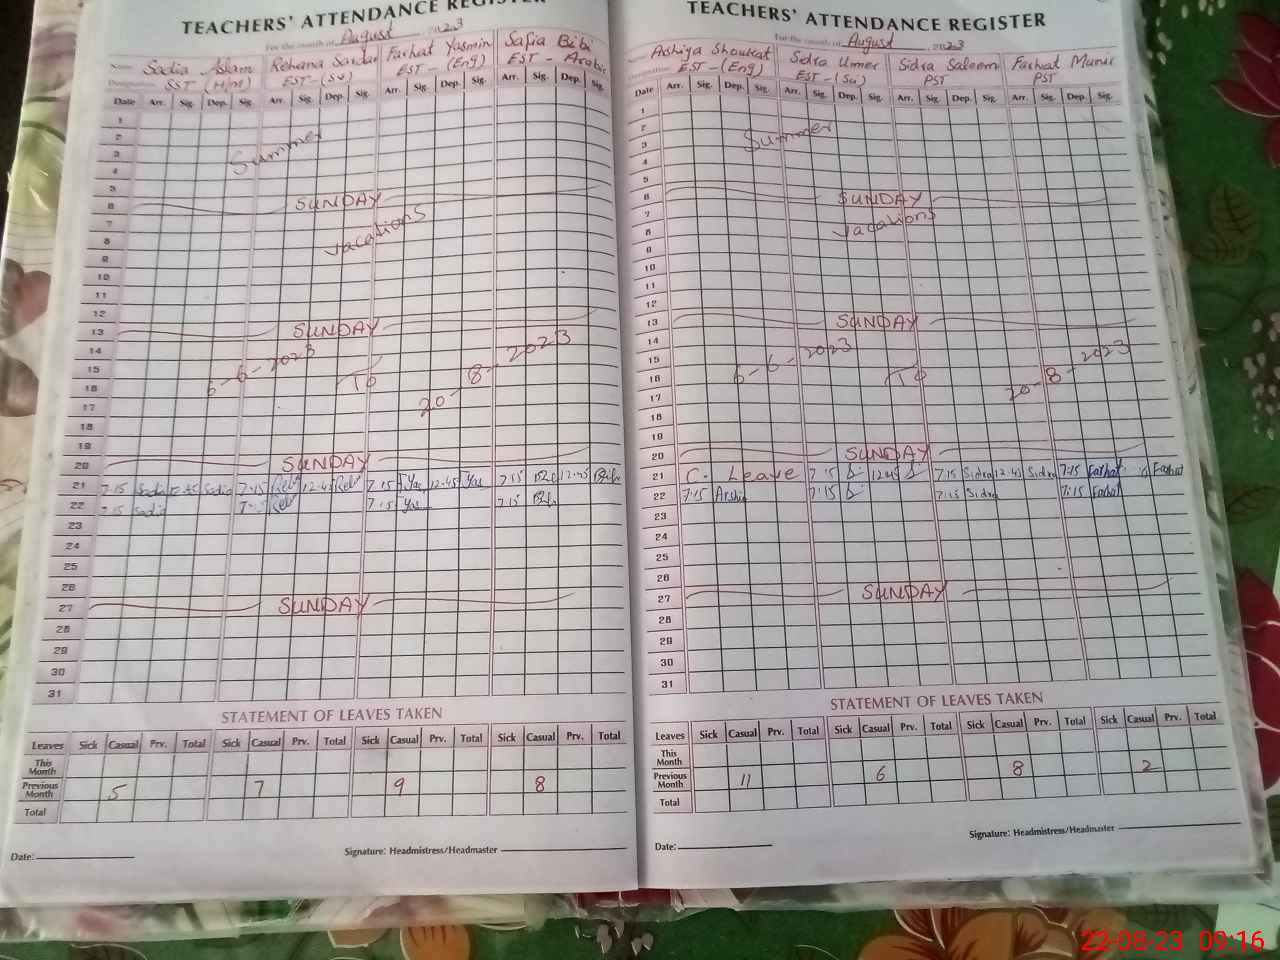 TEACHERS' ATTENDANCE REGISTER
For the month of August 2023
Name Sadia Aslam Rehana Sardar Farhat Yasmin Safia Bibi
Designation SST (H/M) EST-(Su) EST-(Eng) EST- Arabic
Date Arr. Sig. Dep. Sig. Arr. Sig. Dep. Sig. Arr. Sig. Dep. Sig. Arr. Sig. Dep. Sig.
1
2
3 Summer
4
5
6 SUNDAY
7 vacations
8
9
10
11
12
13 SUNDAY
14
15
16 6-6-2023 To 20-8-2023
17
18
19
20 SUNDAY
21 7:15 Sadia 12:45 Sadia 7:15 12:45 7:15 Yas 12:45 Yas 7:15 12:45
22 7:15 Sadia 7:15 Yas 7:15
23
24
25
26
27 SUNDAY
28
29
30
31
STATEMENT OF LEAVES TAKEN
Leaves Sick Casual Prv. Total Sick Casual Prv. Total Sick Casual Prv. Total Sick Casual Prv. Total
This Month
Previous Month 5 7 9 8
Total
Date: Signature: Headmistress/Headmaster
TEACHERS' ATTENDANCE REGISTER
For the month of August 2023
Name Ashiya Shoukat Sidra Umer Sidra Saleem Farhat Munir
Designation EST-(Eng) EST-(Su) PST PST
Date Arr. Sig. Dep. Sig. Arr. Sig. Dep. Sig. Arr. Sig. Dep. Sig. Arr. Sig. Dep. Sig.
1
2 Summer
3
4
5
6 SUNDAY
7 vacations
8
9
10
11
12
13 SUNDAY
14
15
16 6-6-2023 To 20-8-2023
17
18
19
20 SUNDAY
21 C. Leave 7:15 12:45 7:15 Sidra 12:45 Sidra 7:15 Farhat Farhat
22 7:15 Arshia 7:15 7:15 Sidra 7:15 Farhat
23
24
25
26
27 SUNDAY
28
29
30
31
STATEMENT OF LEAVES TAKEN
Leaves Sick Casual Prv. Total Sick Casual Prv. Total Sick Casual Prv. Total Sick Casual Prv. Total
This Month
Previous Month 11 6 8 2
Total
Date: Signature: Headmistress/Headmaster
22-08-23 09:16